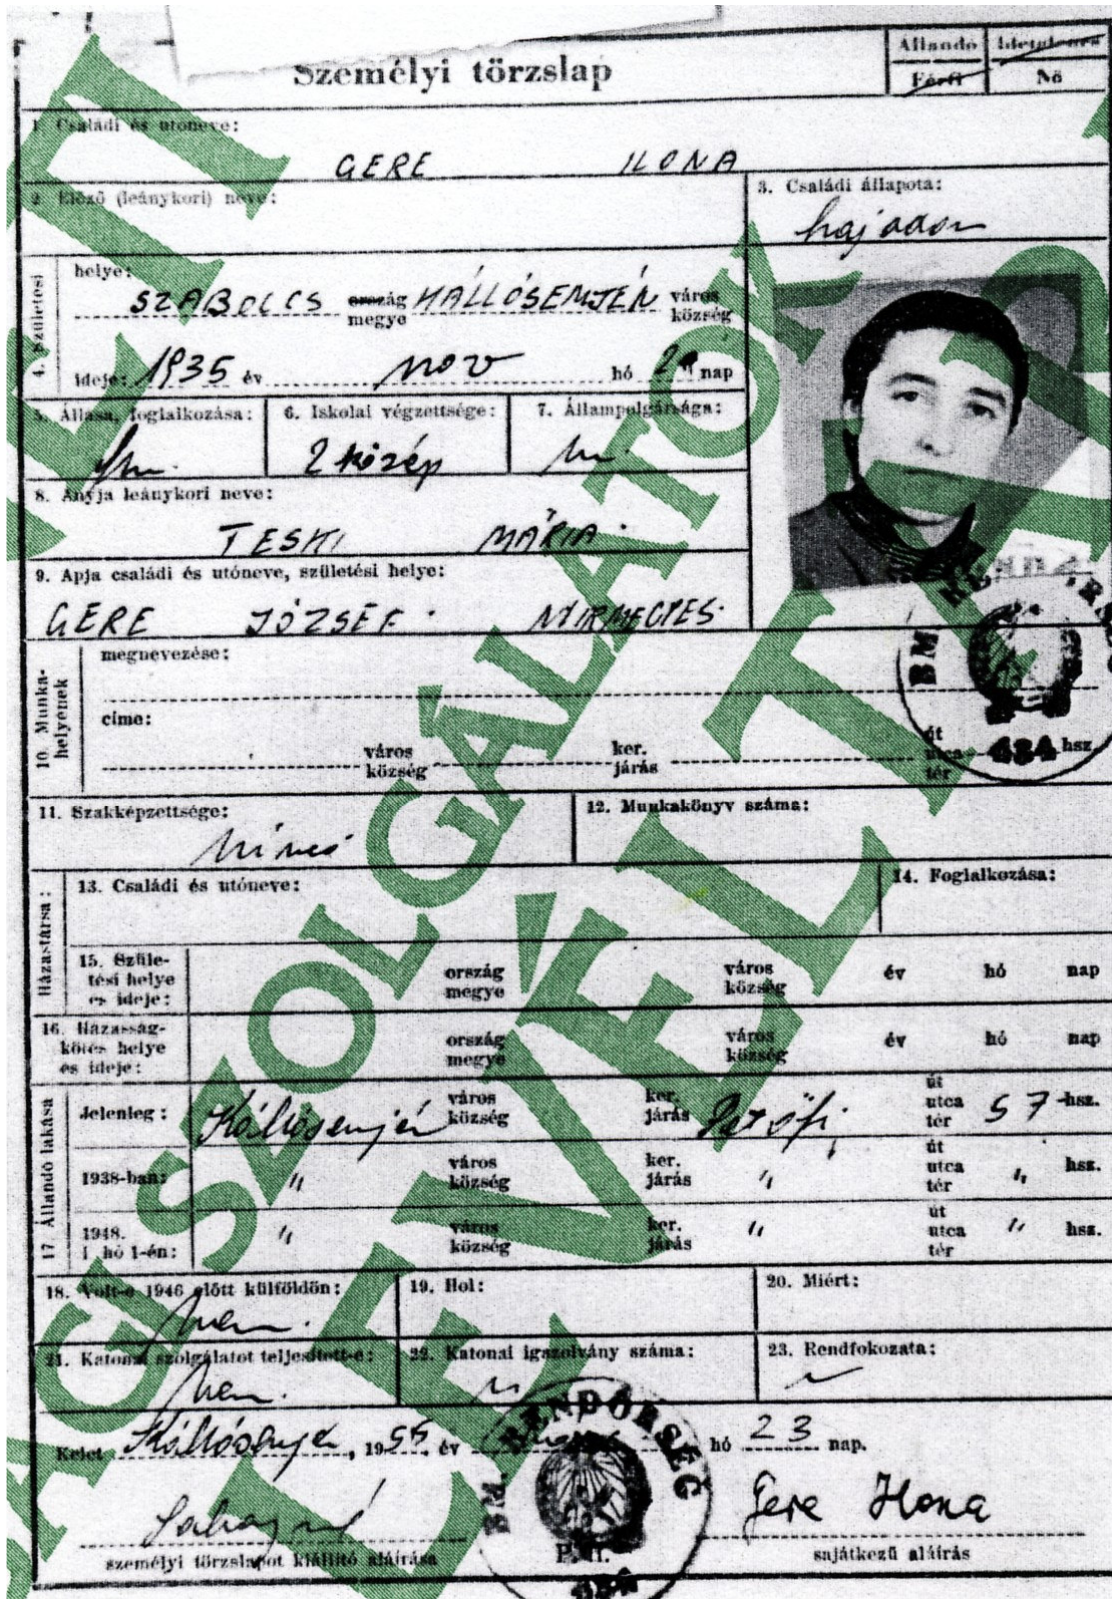 Személyi törzslap
Állandó Ideiglenes
Férfi Nő
1. Családi és utóneve:
GERE ILONA
2. Előző (leánykori) neve:
3. Családi állapota:
hajadon
4. Születési
helye:
SZABOLCS ország megye KÁLLÓSEMJÉN város község
ideje: 1935 év nov hó nap
5. Állása, foglalkozása:
6. Iskolai végzettsége:
2 közép
7. Állampolgársága:
8. Anyja leánykori neve:
MÁRIA
9. Apja családi és utóneve, születési helye:
GERE JÓZSEF NYIRMEGYES
10. Munkahelyének
megnevezése:
címe:
város község ker. járás út utca tér hsz.
11. Szakképzettsége:
nincs
12. Munkakönyv száma:
Házastársa:
13. Családi és utóneve:
14. Foglalkozása:
15. Születési helye és ideje: ország megye város község év hó nap
16. Házasságkötés helye és ideje: ország megye város község év hó nap
17 Állandó lakása
Jelenleg: Kállósemjén város község ker. járás Petőfi út utca tér 57 hsz.
1938-ban: " város község ker. járás " út utca tér " hsz.
1948. I hó 1-én: " város község ker. járás " út utca tér " hsz.
18. Volt-e 1946 előtt külföldön:
Nem.
19. Hol:
20. Miért:
21. Katonai szolgálatot teljesített-e:
Nem.
22. Katonai igazolvány száma:
23. Rendfokozata:
Kelet Kállósemjén, 1955 év hó 23 nap.
Gere Ilona
személyi törzslapot kiállító aláírása
sajátkezű aláírás
BM. RENDŐRSÉG
ÁLLAMBIZTONSÁGI SZOLGÁLATOK
LEVÉLTÁRA